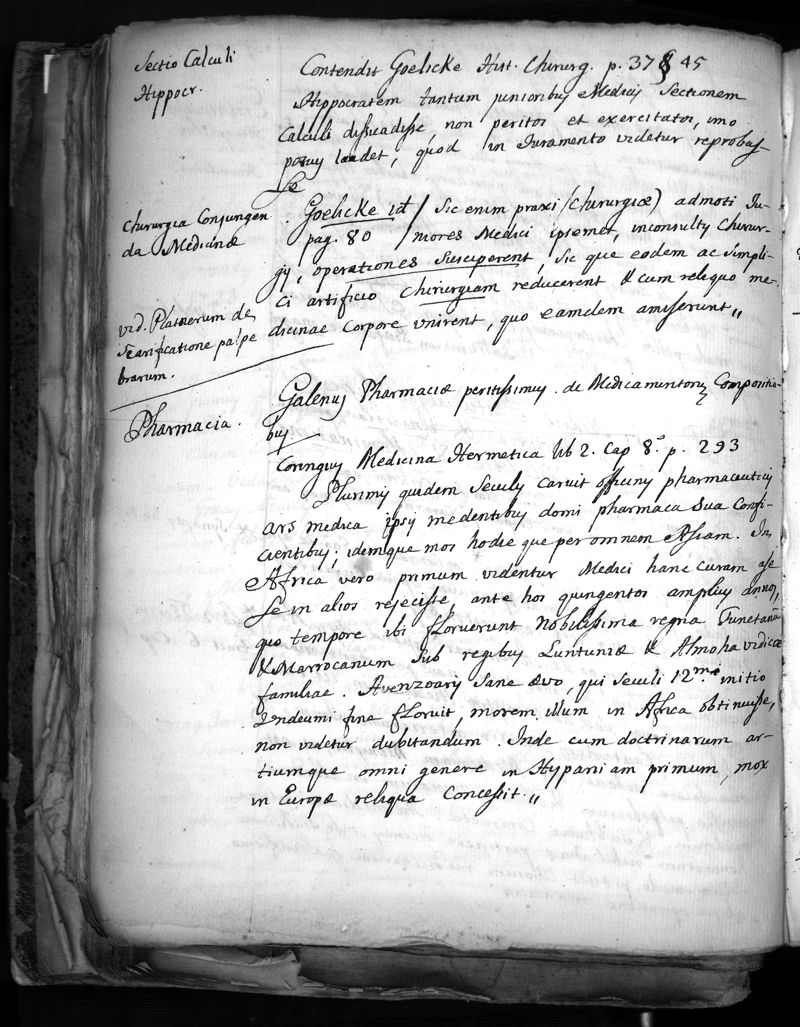 Sectio Calculi
Hippocr.
Contendit Goelicke Hist. Chirurg. p. 37 & 45
Hippocratem tantum junioribus Medicis Sectionem
Calculi dissuadisse, non peritos et exercitatos, imo
potius laudet, quod in Juramento videtur reprobas-
se
Chirurgia Conjungen
da Medicinæ
Goelicke id / Sic enim praxi (Chirurgicæ) admoti Ju-
pag. 80 / niores Medici ipsemet, inconsultis Chirur-
gis, operationes Susciperent, Sic que eodem ac simpli-
ci artificio Chirurgiam reducerent & cum reliquo me-
dicinae Corpore unirent, quo eamdem amiserunt,,
vid. Platnerum de
Scarificatione palpe
brarum.
Pharmacia.
Galenus Pharmaciæ peritissimus. de Medicamentorum Compositio-
bus
Coringius Medicina Hermetica lib 2. Cap 8.° p. 293
Plurimis quidem Seculis caruit officinis pharmaceuticis
ars medica ipsis medentibus domi pharmaca sua Confi-
cientibus; idemque mos hodie que per omnem Asiam. In
Africa vero primum videntur Medici hanc curam a se
se in alios rejecisse, ante hos quingentos amplius annos,
quo tempore ibi floruerunt Nobilissima regna Tunetanũ
& Marrocanum Sub regibus Luntuniæ & Almohavidicæ
familiae. Avenzoaris Sane ævo, qui Seculi 12.mi initio
Undecimi fine floruit, morem illum in Africa obtinuisse,
non videtur dubitandum. Inde cum doctrinarum ar-
tiumque omni genere in Hypaniam primum, mox
in Europæ reliqua Concessit.,,